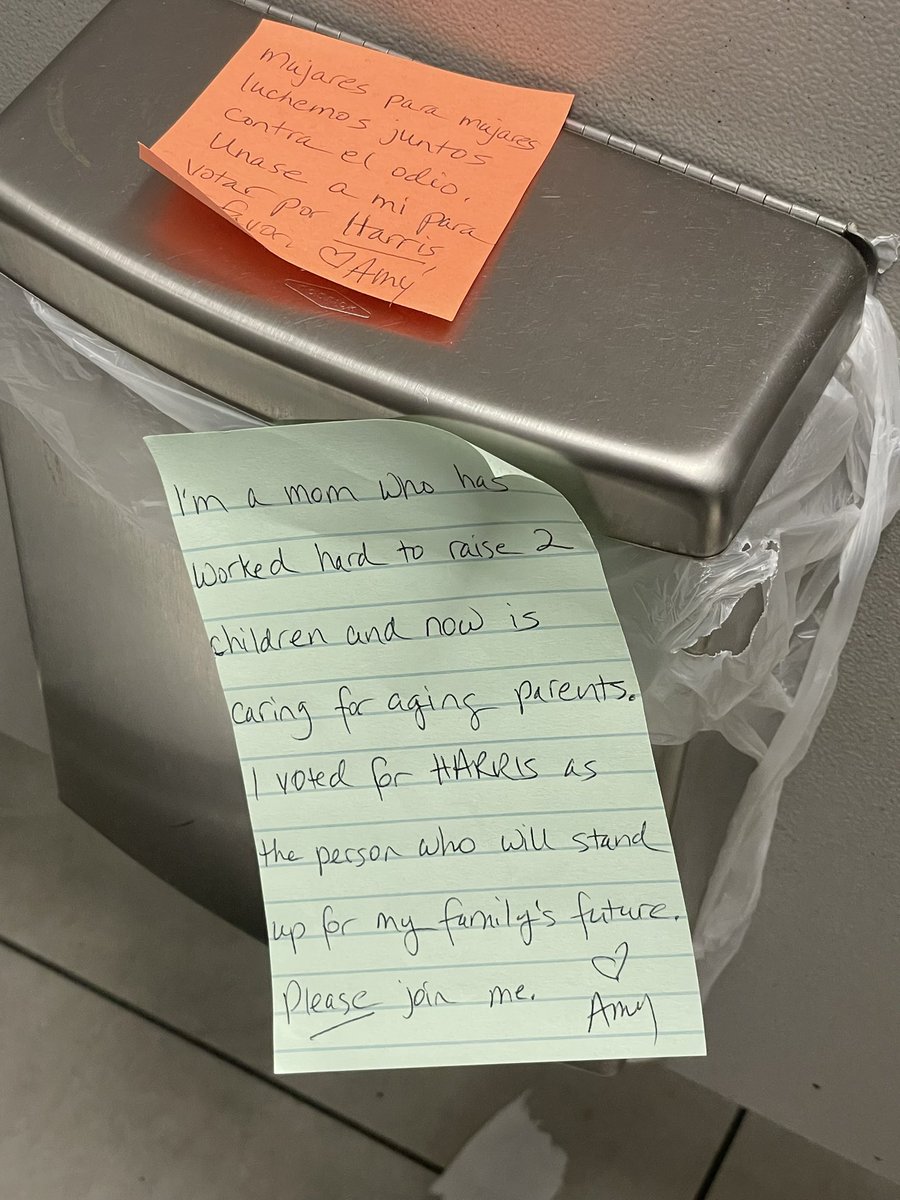 Mujares para mujares
luchemos juntos
contra el odio.
Unase a mi para
votar por Harris,
favor. ♡Amy
I'm a mom who has
worked hard to raise 2
children and now is
caring for aging parents.
I voted for HARRIS as
the person who will stand
up for my family's future.
Please join me. ♡
Amy